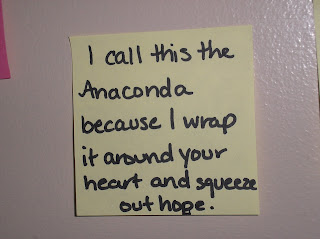 I call this the
Anaconda
because I wrap
it around your
heart and squeeze
out hope.